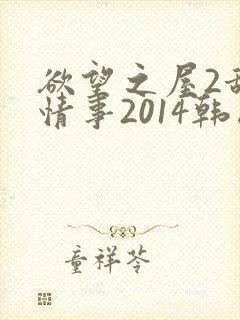 欲望之屋2
情事2014韩
童祥苓